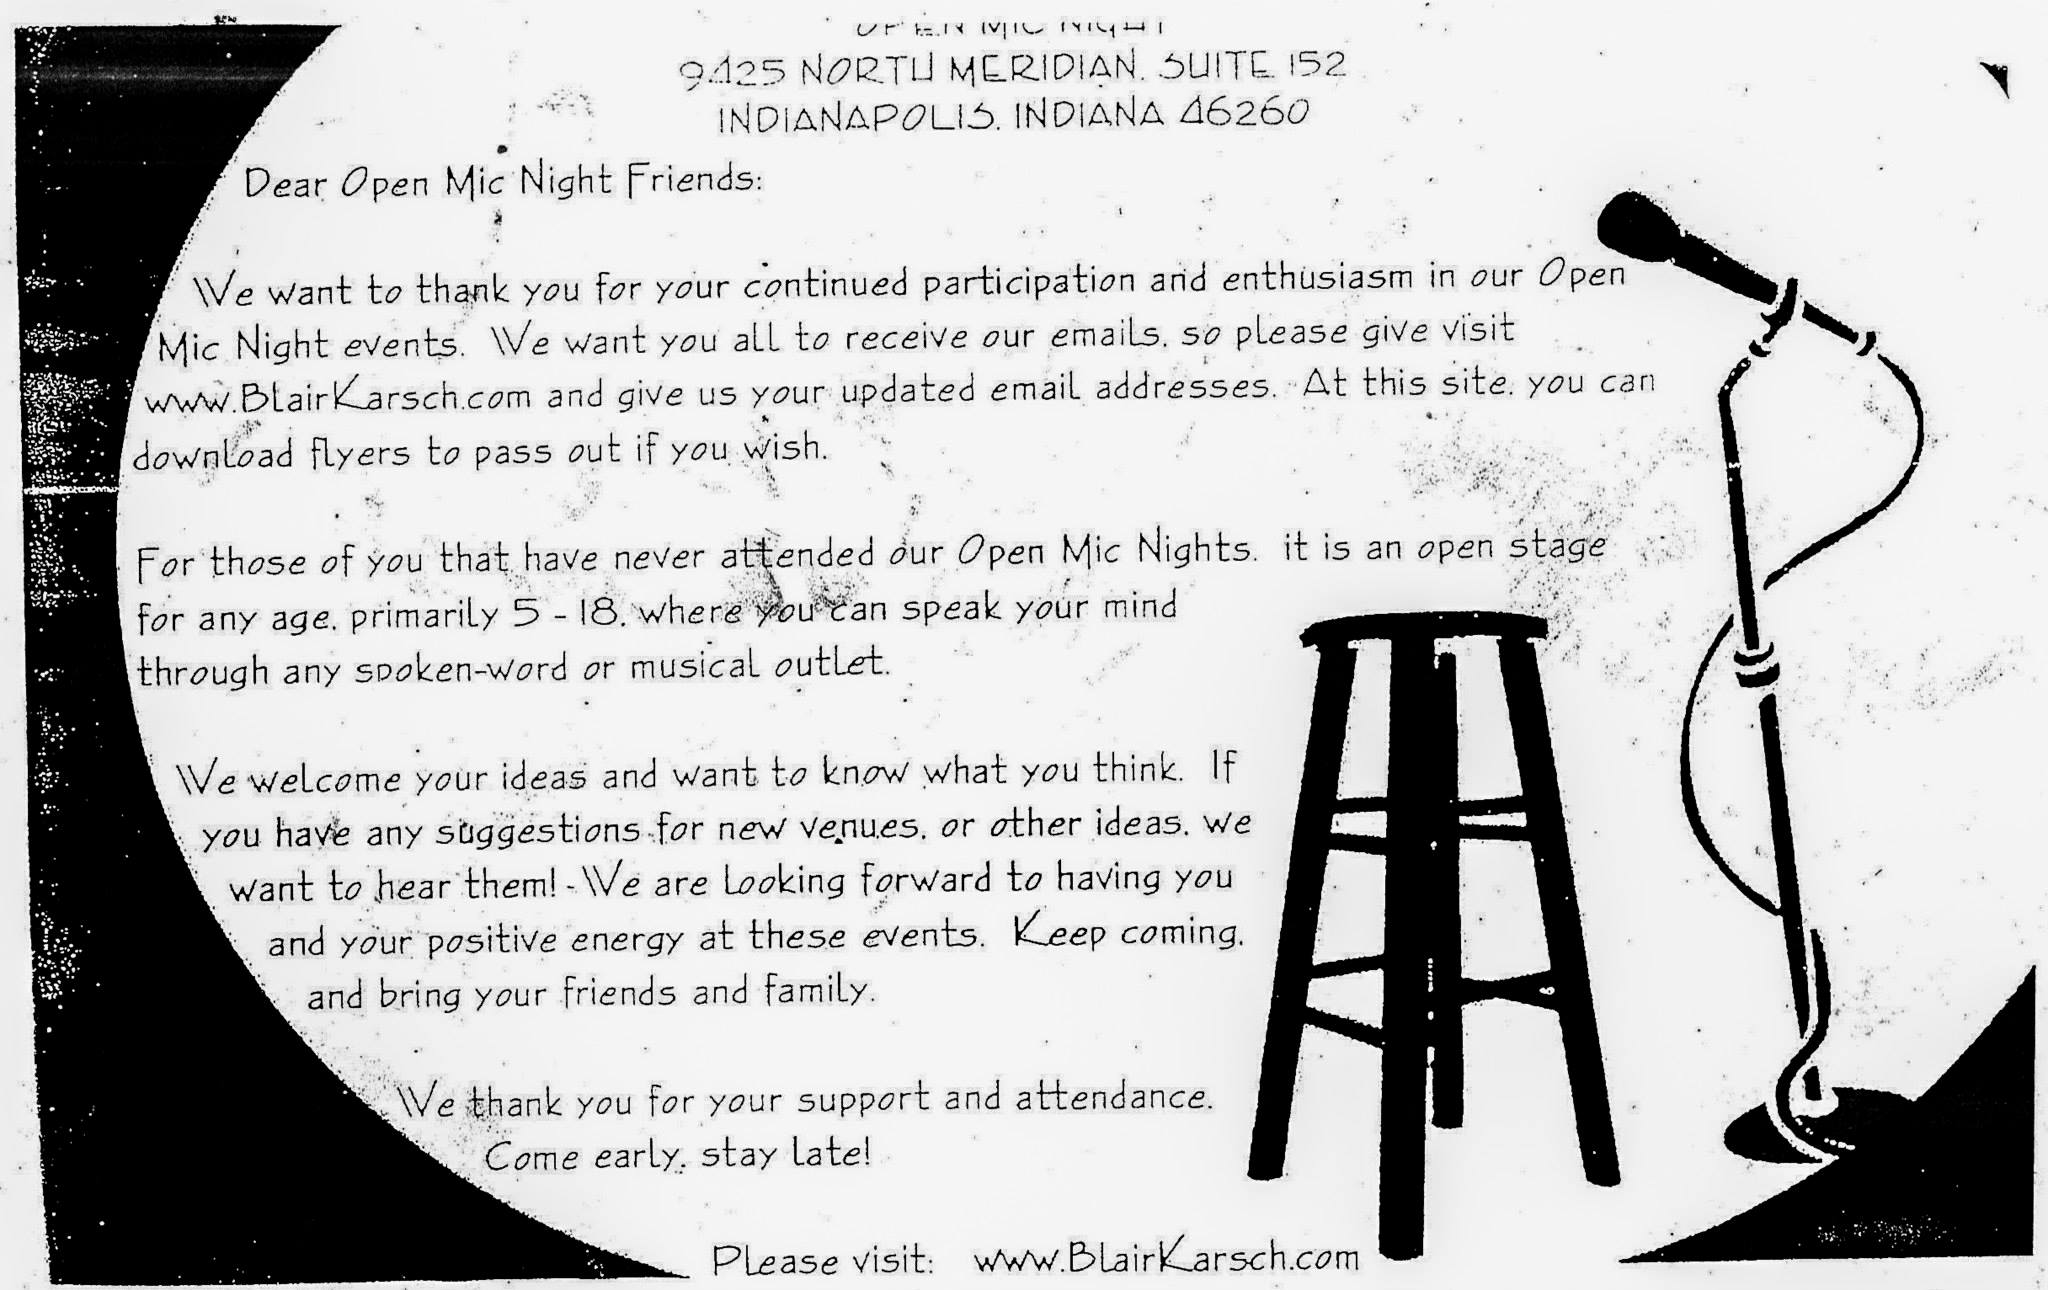 OPEN MIC NIGHT
9425 NORTH MERIDIAN, SUITE 152
INDIANAPOLIS, INDIANA 46260
Dear Open Mic Night Friends:
We want to thank you for your continued participation and enthusiasm in our Open
Mic Night events. We want you all to receive our emails, so please give visit
www.BlairKarsch.com and give us your updated email addresses. At this site, you can
download flyers to pass out if you wish.
For those of you that have never attended our Open Mic Nights, it is an open stage
for any age, primarily 5 - 18, where you can speak your mind
through any spoken-word or musical outlet.
We welcome your ideas and want to know what you think. If
you have any suggestions for new venues, or other ideas, we
want to hear them! We are looking forward to having you
and your positive energy at these events. Keep coming,
and bring your friends and family.
We thank you for your support and attendance.
Come early, stay late!
Please visit: www.BlairKarsch.com